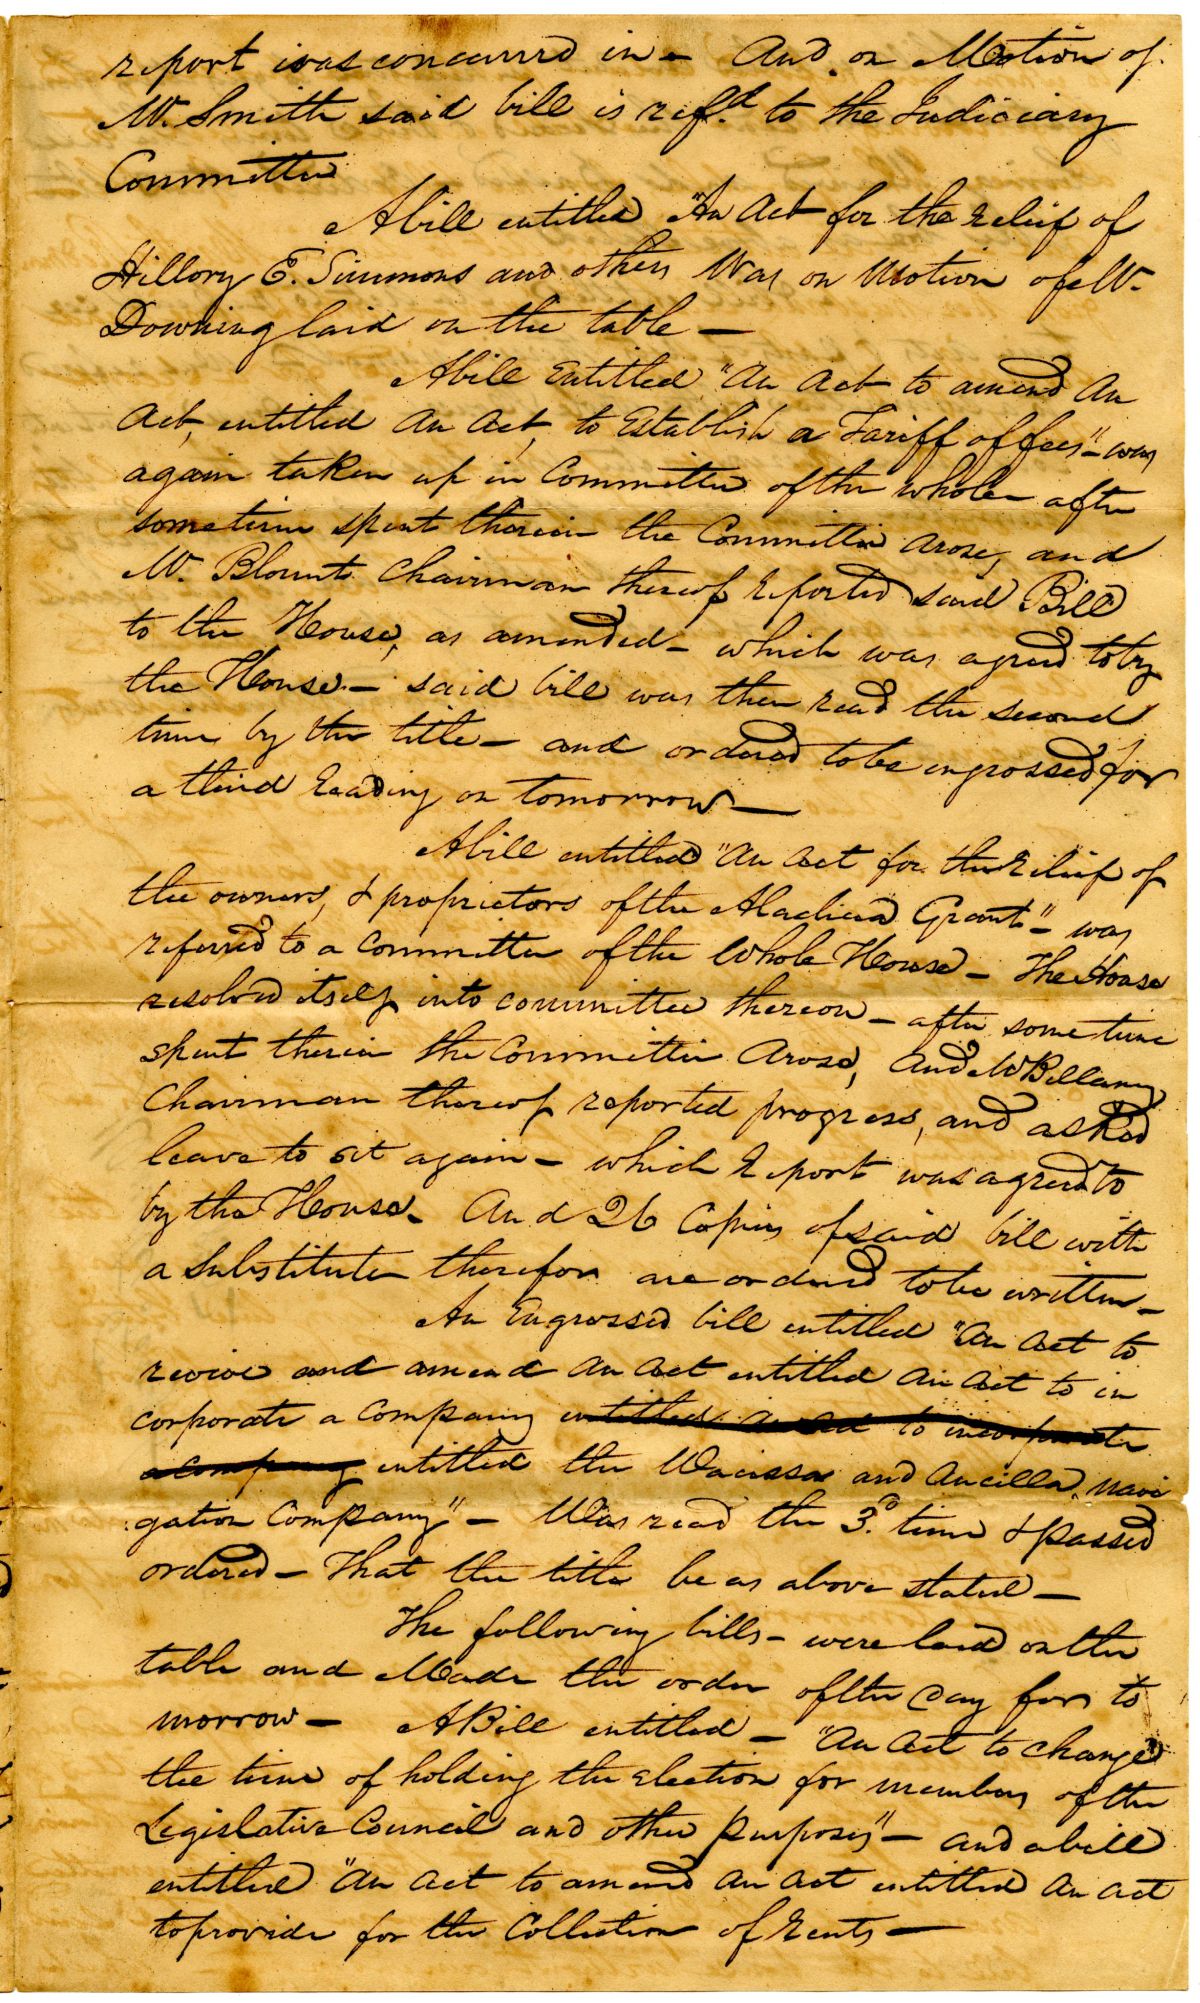 report was concurred in - And on Motion of
Mr. Smith said bill is refd. to the Judiciary
Committee
A bill entitled "An Act for the relief of
Hillory E. Simmons and others Was on Motion of Mr.
Downing laid on the table —
A bill Entitled "An Act to amend An
Act, entitled An Act, to Establish a Tariff of fees" - was
again taken up in Committee of the whole - after
sometime spent therein the Committee arose, and
Mr. Blount Chairman thereof reported said Bill
to the House, as amended - which was agreed to by
the House - said bill was then read the second
time by the title - and ordered to be engrossed for
a third reading on tomorrow —
A bill entitled "An Act for the relief of
the owners, & proprietors of the Alachua Grant" - was
referred to a Committee of the Whole House - The House
resolved itself into committee thereon - after some time
spent therein the Committee Arose, and Mr Bellamy
Chairman thereof reported progress, and asked
leave to sit again - which report was agreed to
by the House - And 26 Copies of said bill with
a substitute therefor are ordered to be written -
An Engrossed bill entitled "An Act to
revive and amend an act entitled an act to in
corporate a company entitled an act to incorporate
a company entitled the Wacissa and Aucilla navi
gation Company" - Was read the 3d. time & passed
ordered - That the title be as above stated -
The following bills - were laid on the
table and Made the order of the day for to
morrow - A Bill entitled - "An Act to change
the time of holding the Election for members of the
Legislative Council and other purposes" - and a bill
entitled "An Act to amend an act entitled an act
to provide for the Collection of rents —